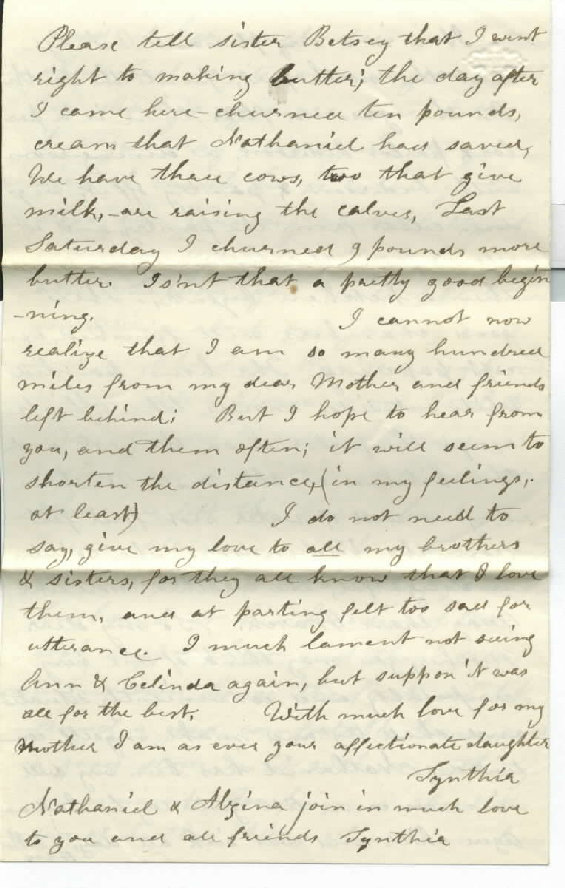 Please tell sister Betsey that I went
right to making butter; the day after
I came here - churned ten pounds,
cream that Nathaniel had saved,
We have three cows, two that give
milk, - are raising the calves, Last
Saturday I churned 9 pounds more
butter. Isn't that a pretty good begin
-ning. I cannot now
realize that I am so many hundred
miles from my dear Mother and friends
left behind; But I hope to hear from
you, and them often; it will seem to
shorten the distance, (in my feelings,
at least) I do not need to
say, give my love to all my brothers
& sisters, for they all know that I love
them, and at parting felt too sad for
utterance. I much lament not seeing
Ann & Celinda again, but suppos' it was
all for the best. With much love for my
Mother I am as ever your affectionate daughter
Synthia
Nathaniel & Alzina join in much love
to you and all friends Synthia